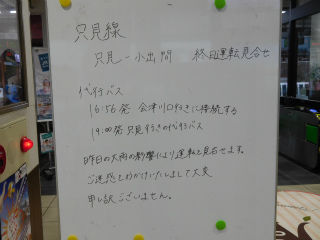 只見線
只見－小出間 終日運転見合せ
代行バス
16:56発 会津川口行きに接続する
19:00発 只見行きの代行バス
昨日の大雨の影響により運転を見合せます。
ご迷惑をおかけいたしまして大変
申し訳ございません。